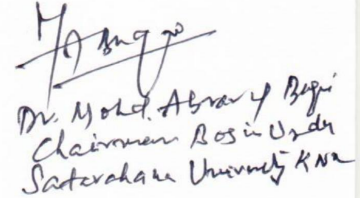 Dr. Mohd. Absar ul Begi
Chairman BOS in Urdu
Satavahana University KNR